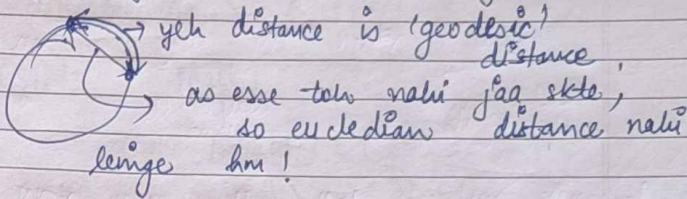 yeh distance is 'geodesic'
distance,
as esse toh nahi jaa skte,
so eucledian distance nahi
lenge hm!